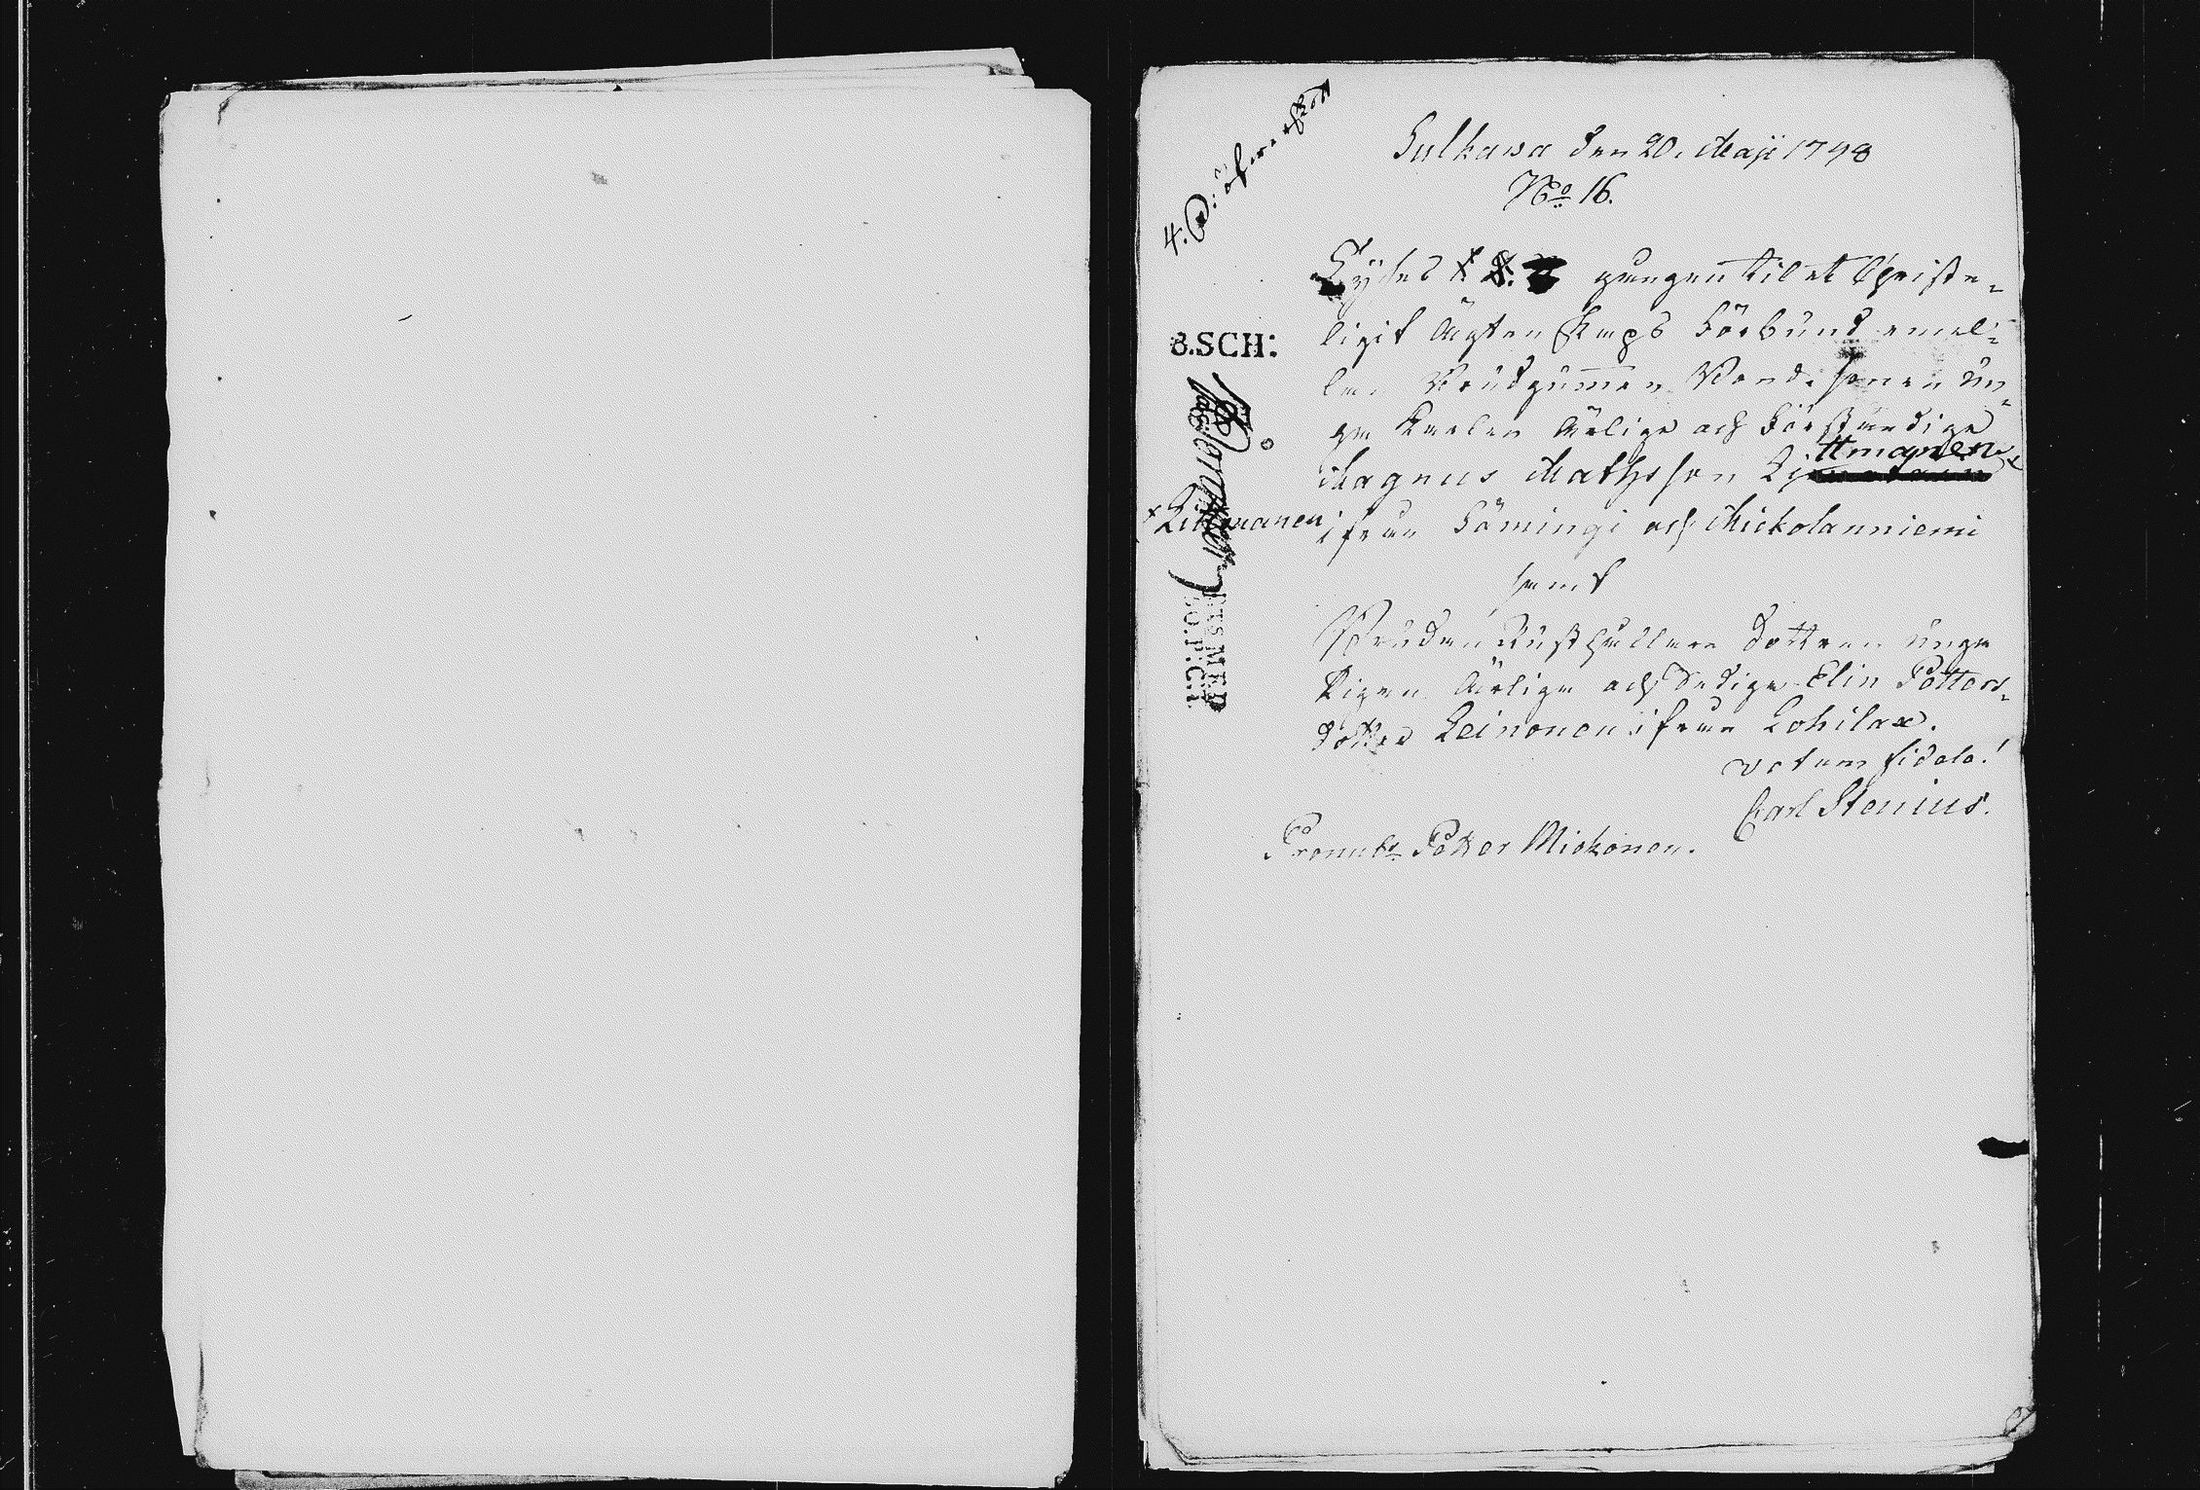 Sulkawa den 20. Maji 1798
No 16.
Lyses gången til et Christe-
ligit Ägtenskaps Förbund emel-
lan Brudgummen Bonde sonen un-
ga Karlen Ärlige och Förståndige
Magnus Mathsson Littmanen x
ifrån Sömingi och Mickolanniemi
samt
Bruden Rusthållare Dottren unga
Pigan Ärliga och Dediga Elin Petters-
dotter Leinonen ifrån Lohilax.
votum fidele!
Carl Stenius.
Pronuba Petter Mickonen.
x Littmanen
8.SCH: